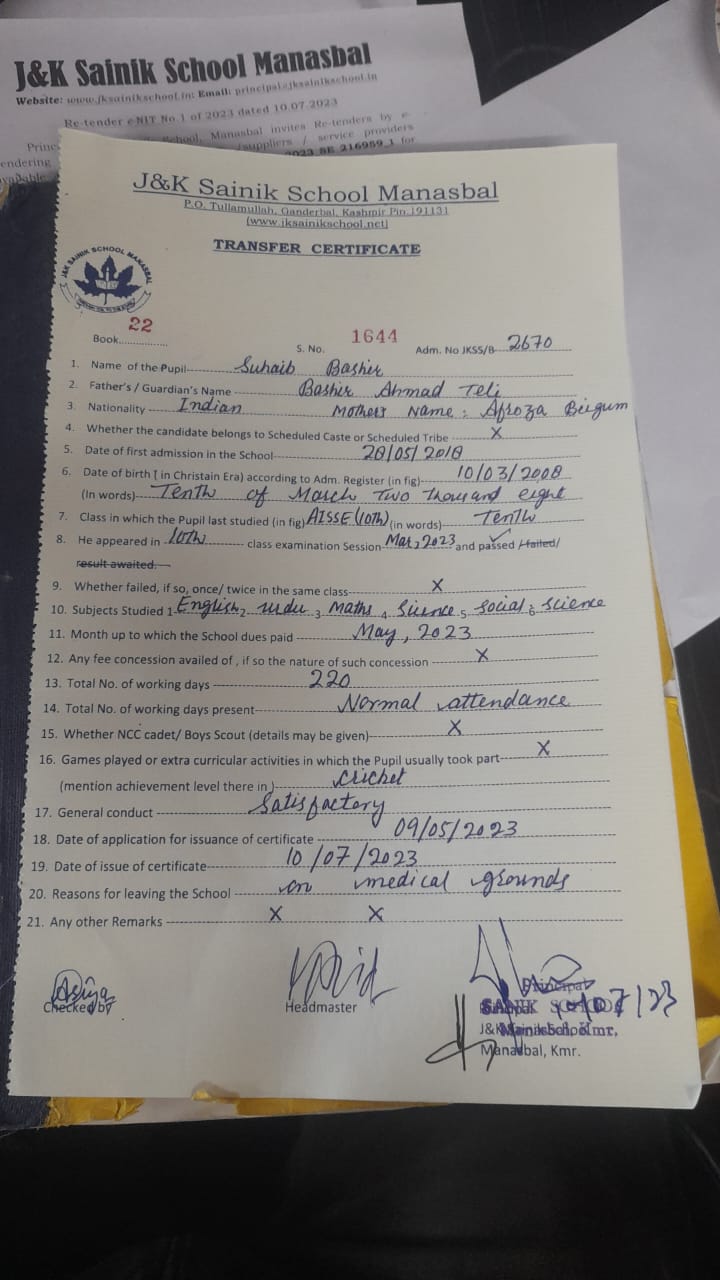 J&K Sainik School Manasbal
Website: www.jksainikschool.in: Email: principal@jksainikschool.in
Re-tender e-NIT No.1 of 2023 dated 10.07.2023
School, Manasbal invites Re-tenders by e-
endering suppliers / service providers
2023 SE 216959 1 for
J&K Sainik School Manasbal
P.O. Tullamullah, Ganderbal, Kashmir Pin.191131
(www.jksainikschool.net)
TRANSFER CERTIFICATE
J&K SAINIK SCHOOL MANASBAL
Book 22 S. No. 1644 Adm. No JKSS/B 2670
1. Name of the Pupil Suhaib Bashir
2. Father's / Guardian's Name Bashir Ahmad Teli
3. Nationality Indian Mother's Name : Afroza Beigum
4. Whether the candidate belongs to Scheduled Caste or Scheduled Tribe X
5. Date of first admission in the School 28/05/2018
6. Date of birth [ in Christain Era) according to Adm. Register (in fig) 10/03/2008
(In words) Tenth of March Two thousand eight
7. Class in which the Pupil last studied (in fig) AISSE (10th) (in words) Tenth
8. He appeared in 10th class examination Session Mar, 2023 and passed /failed/
result awaited.
9. Whether failed, if so, once/ twice in the same class X
10. Subjects Studied 1 English 2 urdu 3 Maths 4 Science 5 Social 6 science
11. Month up to which the School dues paid May, 2023
12. Any fee concession availed of , if so the nature of such concession X
13. Total No. of working days 220
14. Total No. of working days present Normal attendance
15. Whether NCC cadet/ Boys Scout (details may be given) X
16. Games played or extra curricular activities in which the Pupil usually took part X
(mention achievement level there in ) cricket
17. General conduct Satisfactory
18. Date of application for issuance of certificate 09/05/2023
19. Date of issue of certificate 10/07/2023
20. Reasons for leaving the School on medical grounds
21. Any other Remarks X X
Asiya
Checked by Headmaster Principal
Manasbal, Kmr.